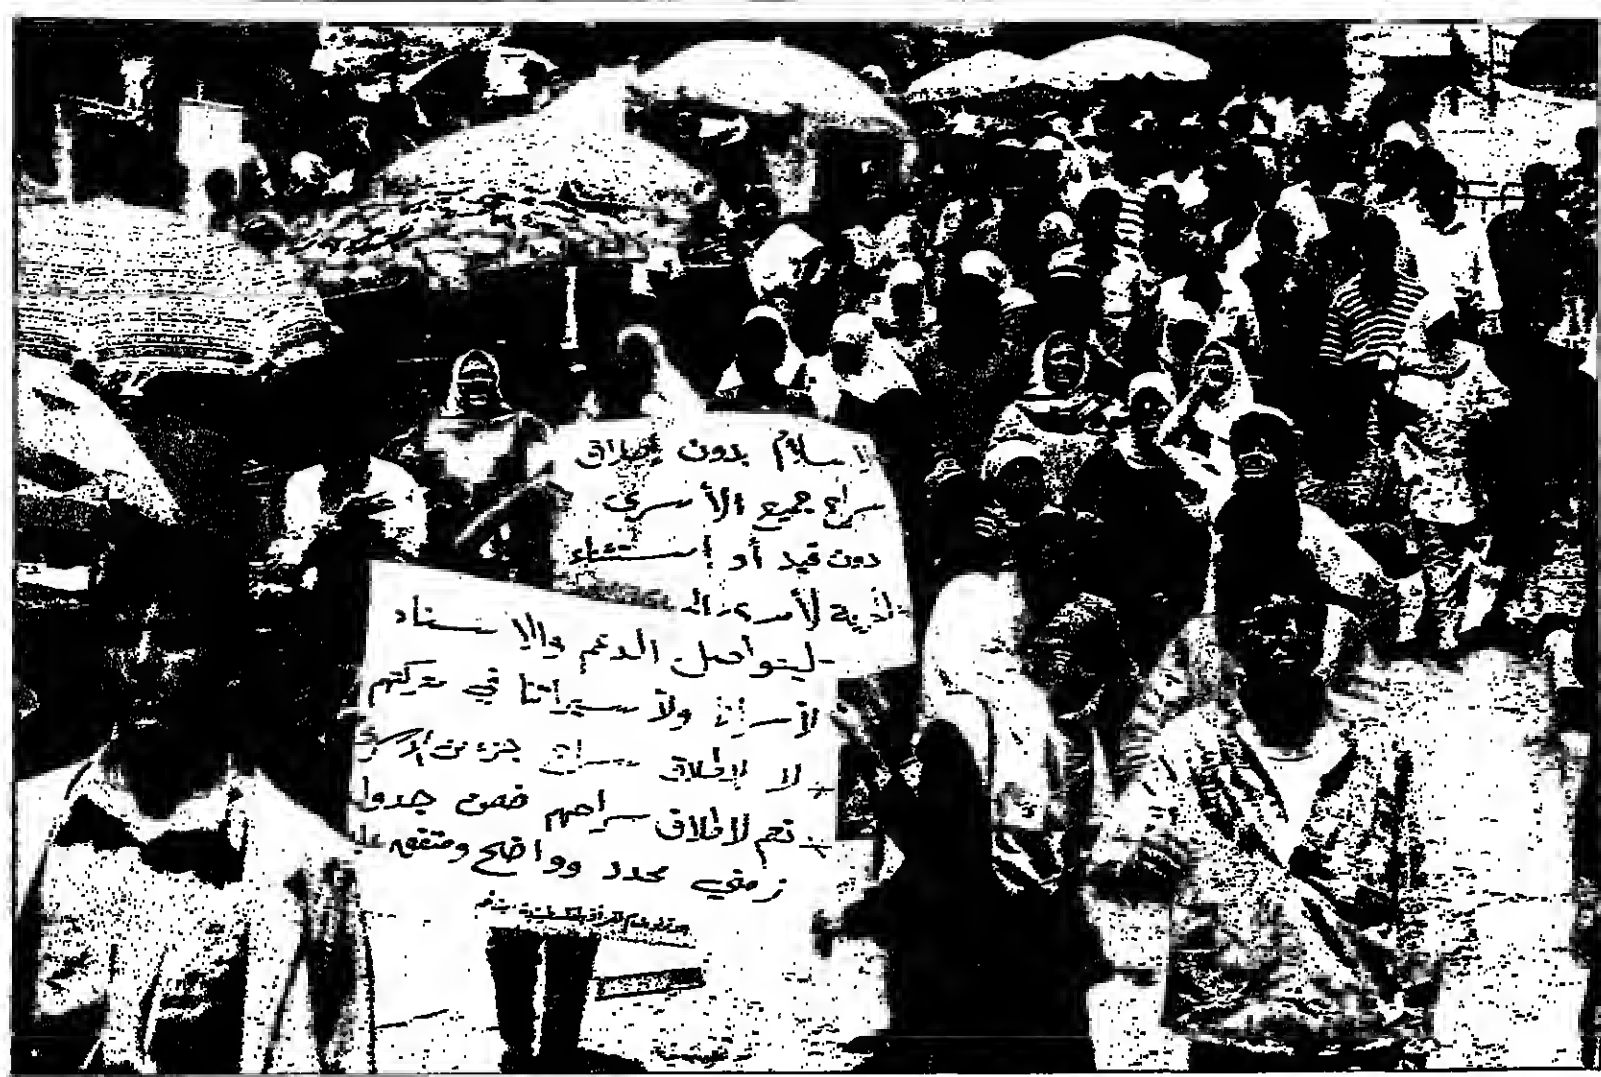 لا سلام بدون إطلاق
سراح جميع الأسرى
دون قيد أو إستثناء
لأسرى
- ليتواصل الدعم والإسناد
لأسرانا ولأسيراتنا في معركتهم
* لا لإطلاق سراح جزء من الأسرى
* نعم لإطلاق سراحهم ضمن جدول
زمني محدد وواضح ومتفق عليه